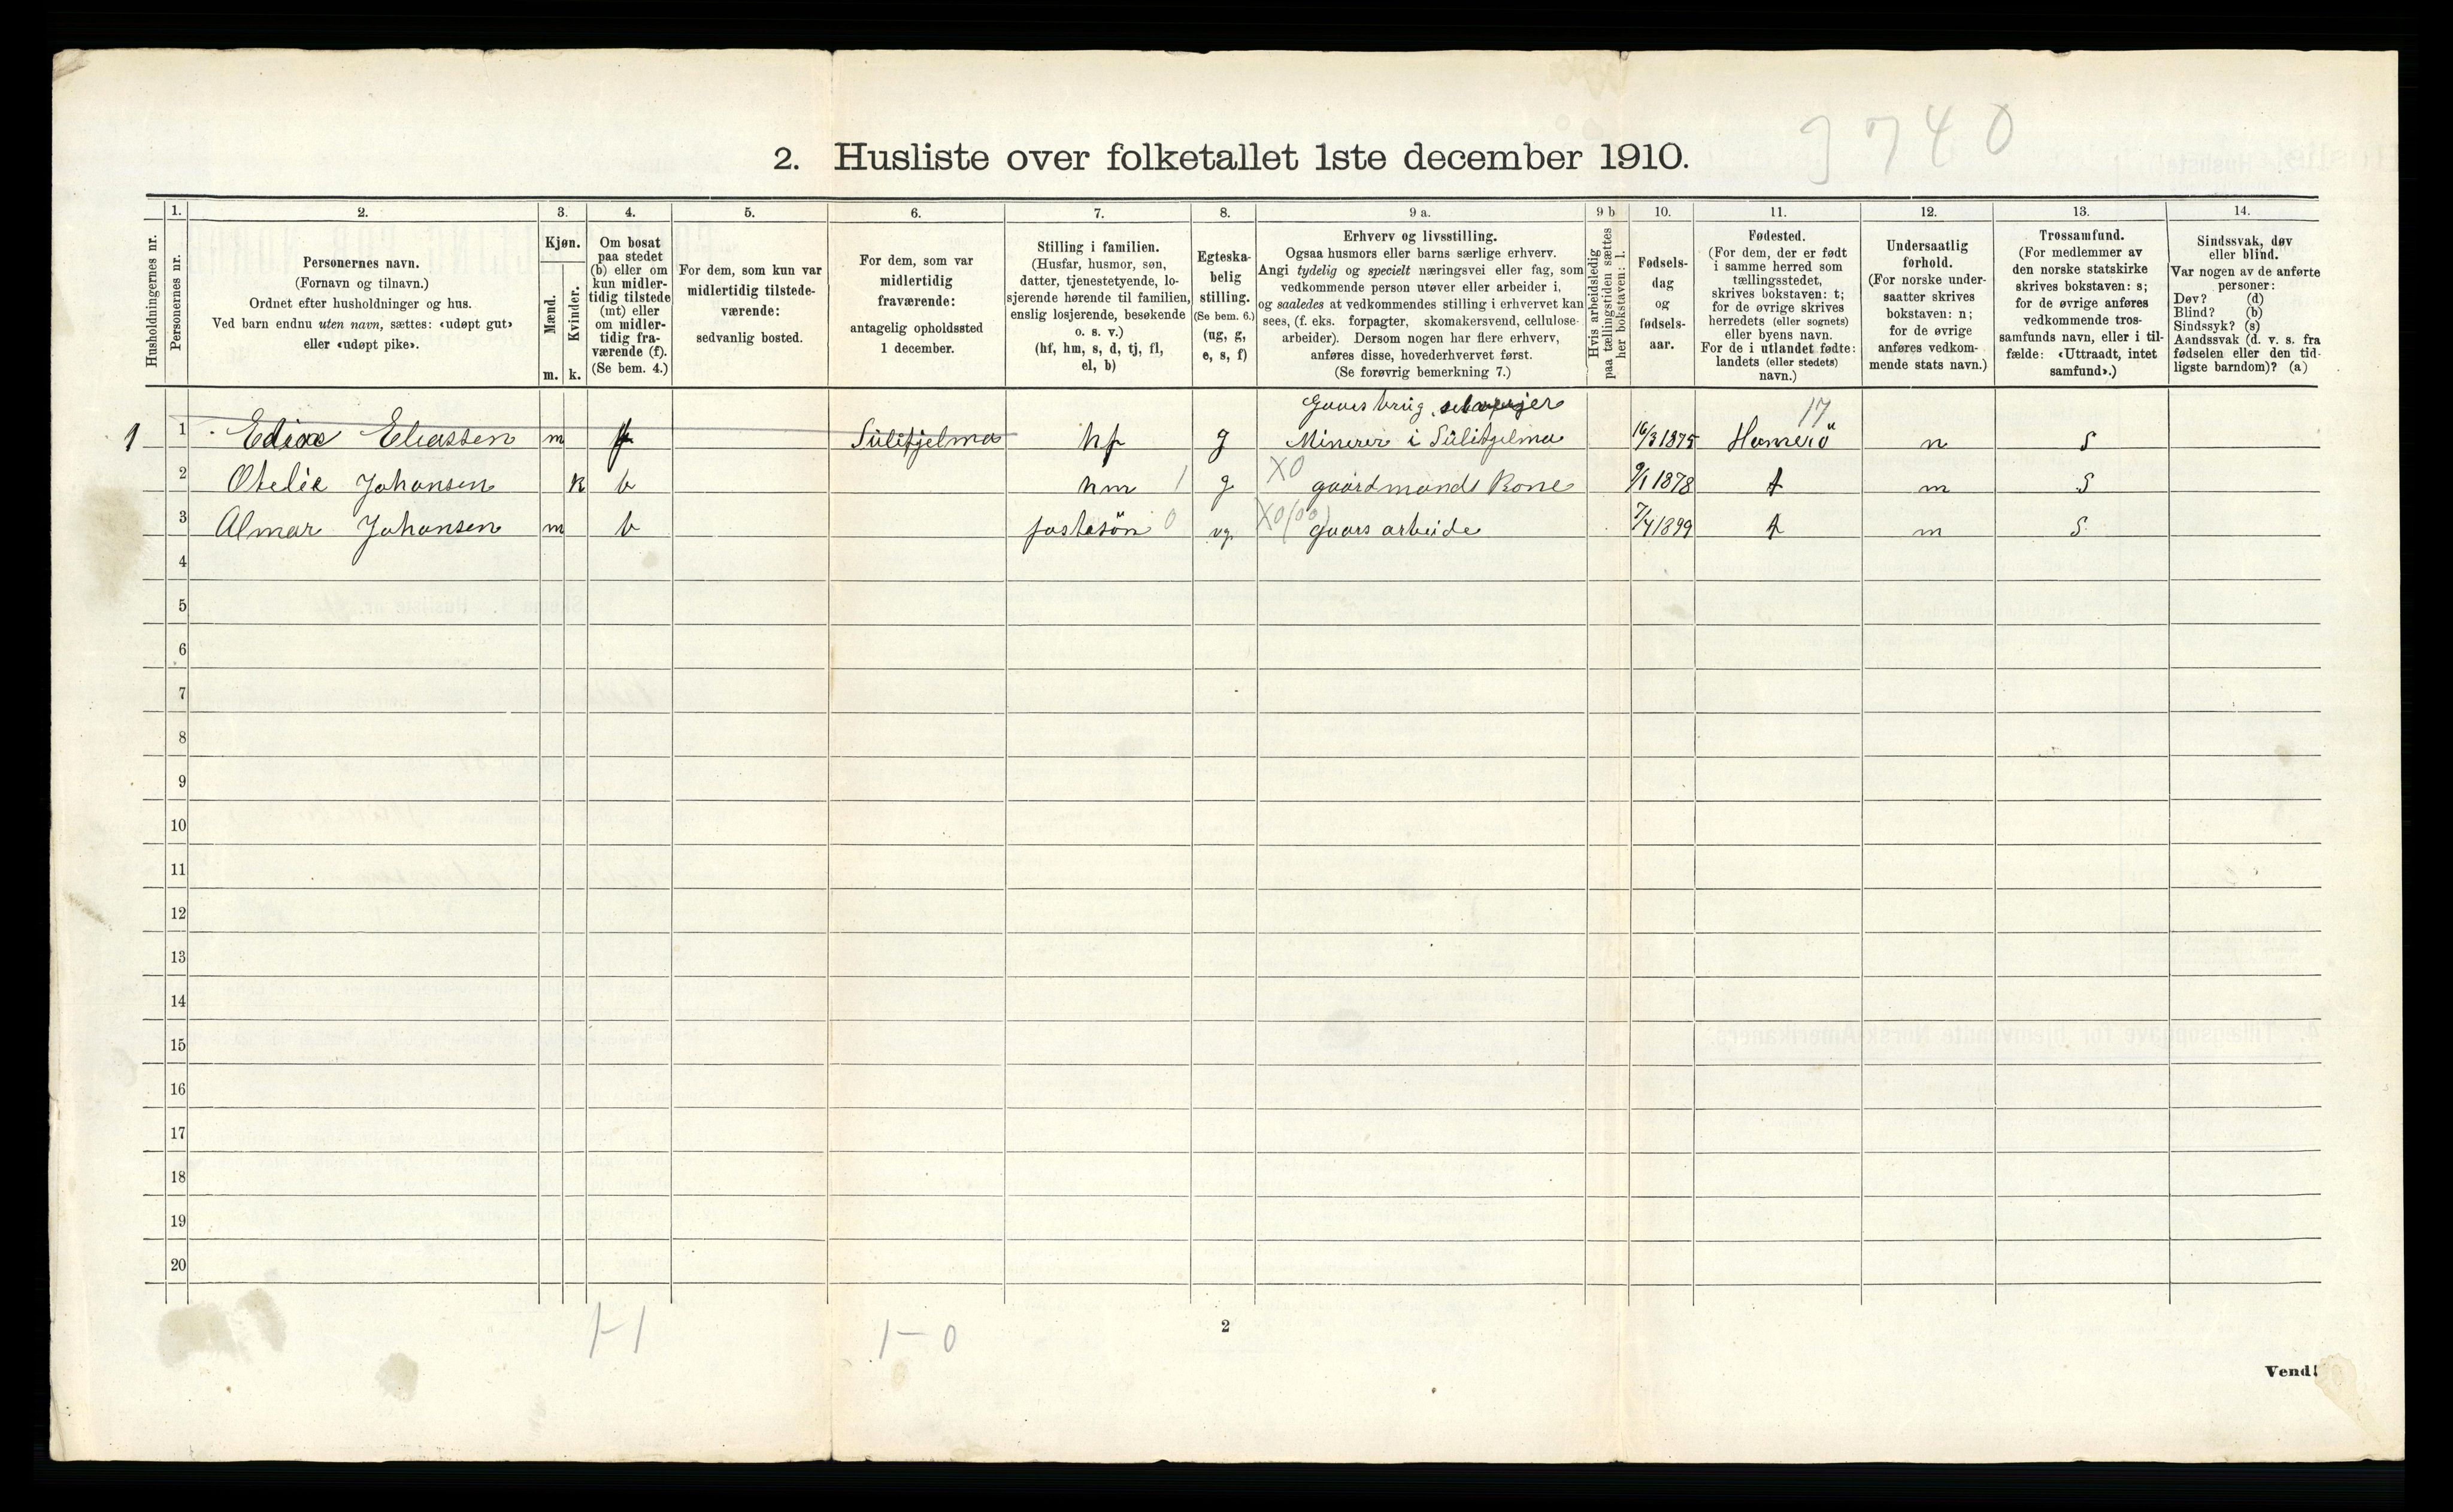 3740
2. Husliste over folketallet 1ste december 1910.
1. 2. 3. 4. 5. 6. 7. 8. 9 a. 9 b 10. 11. 12. 13. 14.
Husholdningernes nr.
Personernes nr.
Personernes navn.
(Fornavn og tilnavn.)
Ordnet efter husholdninger og hus.
Ved barn endnu uten navn, sættes: «udøpt gut»
eller «udøpt pike».
Kjøn.
Mænd.
Kvinder.
m. k.
Om bosat
paa stedet
(b) eller om
kun midler-
tidig tilstede
(mt) eller
om midler-
tidig fra-
værende (f).
(Se bem. 4.)
For dem, som kun var
midlertidig tilstede-
værende:
sedvanlig bosted.
For dem, som var
midlertidig
fraværende:
antagelig opholdssted
1 december.
Stilling i familien.
(Husfar, husmor, søn,
datter, tjenestetyende, lo-
sjerende hørende til familien,
enslig losjerende, besøkende
o. s. v.)
(hf, hm, s, d, tj, fl,
el, b)
Egteska-
belig
stilling.
(Se bem. 6.)
(ug, g,
e, s, f)
Erhverv og livsstilling.
Ogsaa husmors eller barns særlige erhverv.
Angi tydelig og specielt næringsvei eller fag, som
vedkommende person utøver eller arbeider i,
og saaledes at vedkommendes stilling i erhvervet kan
sees, (f. eks. forpagter, skomakersvend, cellulose-
arbeider). Dersom nogen har flere erhverv,
anføres disse, hovederhvervet først.
(Se forøvrig bemerkning 7.)
Hvis arbeidsledig
paa tællingstiden sættes
her bokstaven: l.
Fødsels-
dag
og
fødsels-
aar.
Fødested.
(For dem, der er født
i samme herred som
tællingsstedet,
skrives bokstaven: t;
for de øvrige skrives
herredets (eller sognets)
eller byens navn.
For de i utlandet fødte:
landets (eller stedets)
navn.)
Undersaatlig
forhold.
(For norske under-
saatter skrives
bokstaven: n;
for de øvrige
anføres vedkom-
mende stats navn.)
Trossamfund.
(For medlemmer av
den norske statskirke
skrives bokstaven: s;
for de øvrige anføres
vedkommende tros-
samfunds navn, eller i til-
fælde: «Uttraadt, intet
samfund».)
Sindssvak, døv
eller blind.
Var nogen av de anførte
personer:
Døv? (d)
Blind? (b)
Sindssyk? (s)
Aandssvak (d. v. s. fra
fødselen eller den tid-
ligste barndom)? (a)
Gaars brug, selveier 17
1 1 Elias Eliassen m f Sülitjelma hf g Minerer i Sülitjelma 16/3 1875 Hamerö n S
2 Otelie Johansen k b hm 1 g X0 gaardmands Kone 9/1 1878 t n S
3 Almar Johansen m b fostesön 0 ug X0(00) gaars arbeide 7/4 1899 t n S
4
5
6
7
8
9
10
11
12
13
14
15
16
17
18
19
20
1-1 1-0 2
Vend!